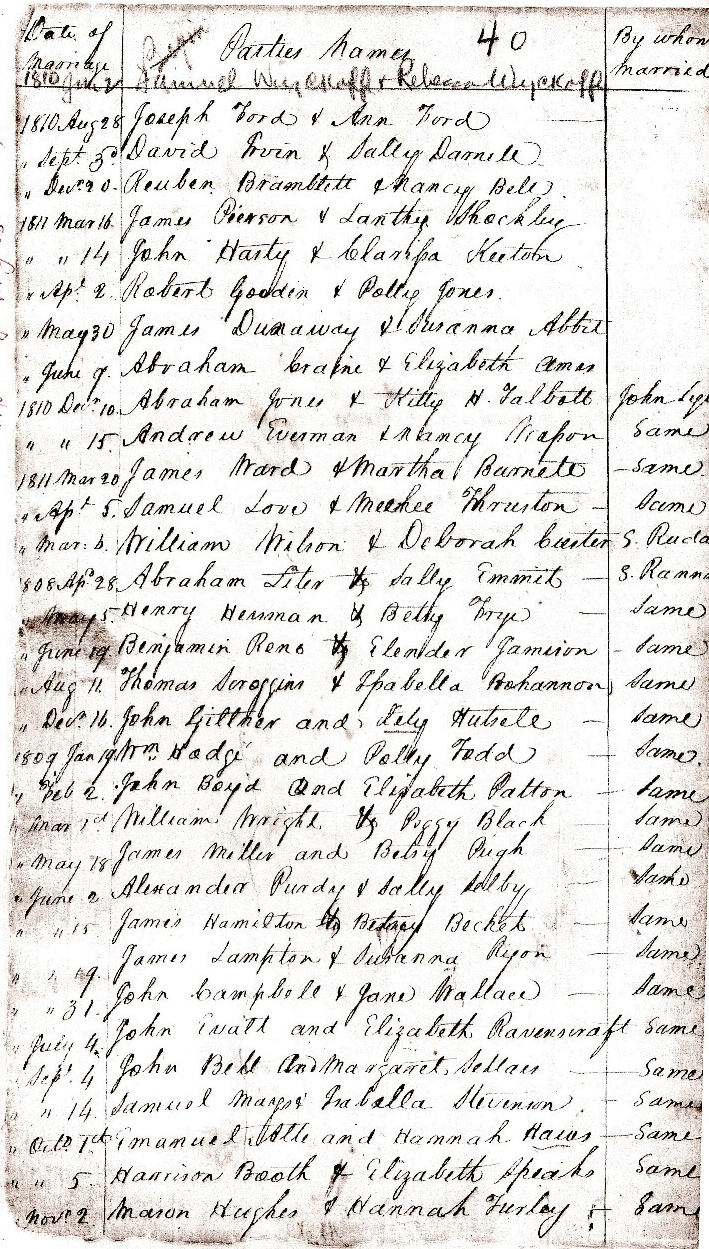 Date of Marriage Parties Names 40 By whom married
1810 June Samuel Wyckoff & Rebecca Wyckoff
1810 Aug 28 Joseph Ford & Ann Ford —
" Sept. 3d David Ervin & Sally Darnele
" Decr 20. Reuben Bramblett & Nancy Bell
1811 Mar 16. James Pierson & Lanthy Shockley
" " 14 John Hasty & Clarissa Keeton
" Apl. 2. Robert Gooden & Polly Jones.
" May 30 James Dunaway & Susanna Abbit
" June 9. Abraham Craine & Elizabeth Amos
1810 Decr. 10. Abraham Jones & Kitty H. Talbott John
" " 15. Andrew Everman & Nancy Wasson Same
1811 Mar 20 James Ward & Martha Burnete — Same
" Apl 5. Samuel Love & Meekee Thruston — Same
" Mar. 6. William Wilson & Deborah Custer G. Ruda
1808 Apl. 28. Abraham Liter & Sally Emmit — S. Rann
" May 5. Henry Hersman & Betty Frye — Same
" June 19 Benjamin Reno & Elender Jamison — Same
" Aug 11. Thomas Scroggins & Issabella Bohannon, Same
" Decr. 16. John Giltner and Zely Hutsele — Same
1809 Jan 19 Wm. Hodge and Polly Todd — Same.
" Feb 2. John Boyd and Elizabeth Patton — Same
" Mar 1st William Wright & Peggy Black — Same
" May 18 James Miller and Betsy Pugh — Same
" June 2 Alexander Purdy & Sally Selby — Same
" " 15 James Hamilton & Betsey Becket — Same
" " 19. James Lampton & Susanna Ryon — Same
" " 31. John Campbell & Jane Wallace — Same
" July 4. John Evatt and Elizabeth Ravenscraft Same
" Sept. 4 John Bell and Margaret Sellars — Same
" " 14. Samuel Mays & Isabella Stevenson — Same
" Octr. 1st Emanuel Alte and Hannah Hawes — Same
" " 5. Harrison Booth & Elizabeth Speaks Same
" Novr 2 Mason Hughes & Hannah Turley — Same